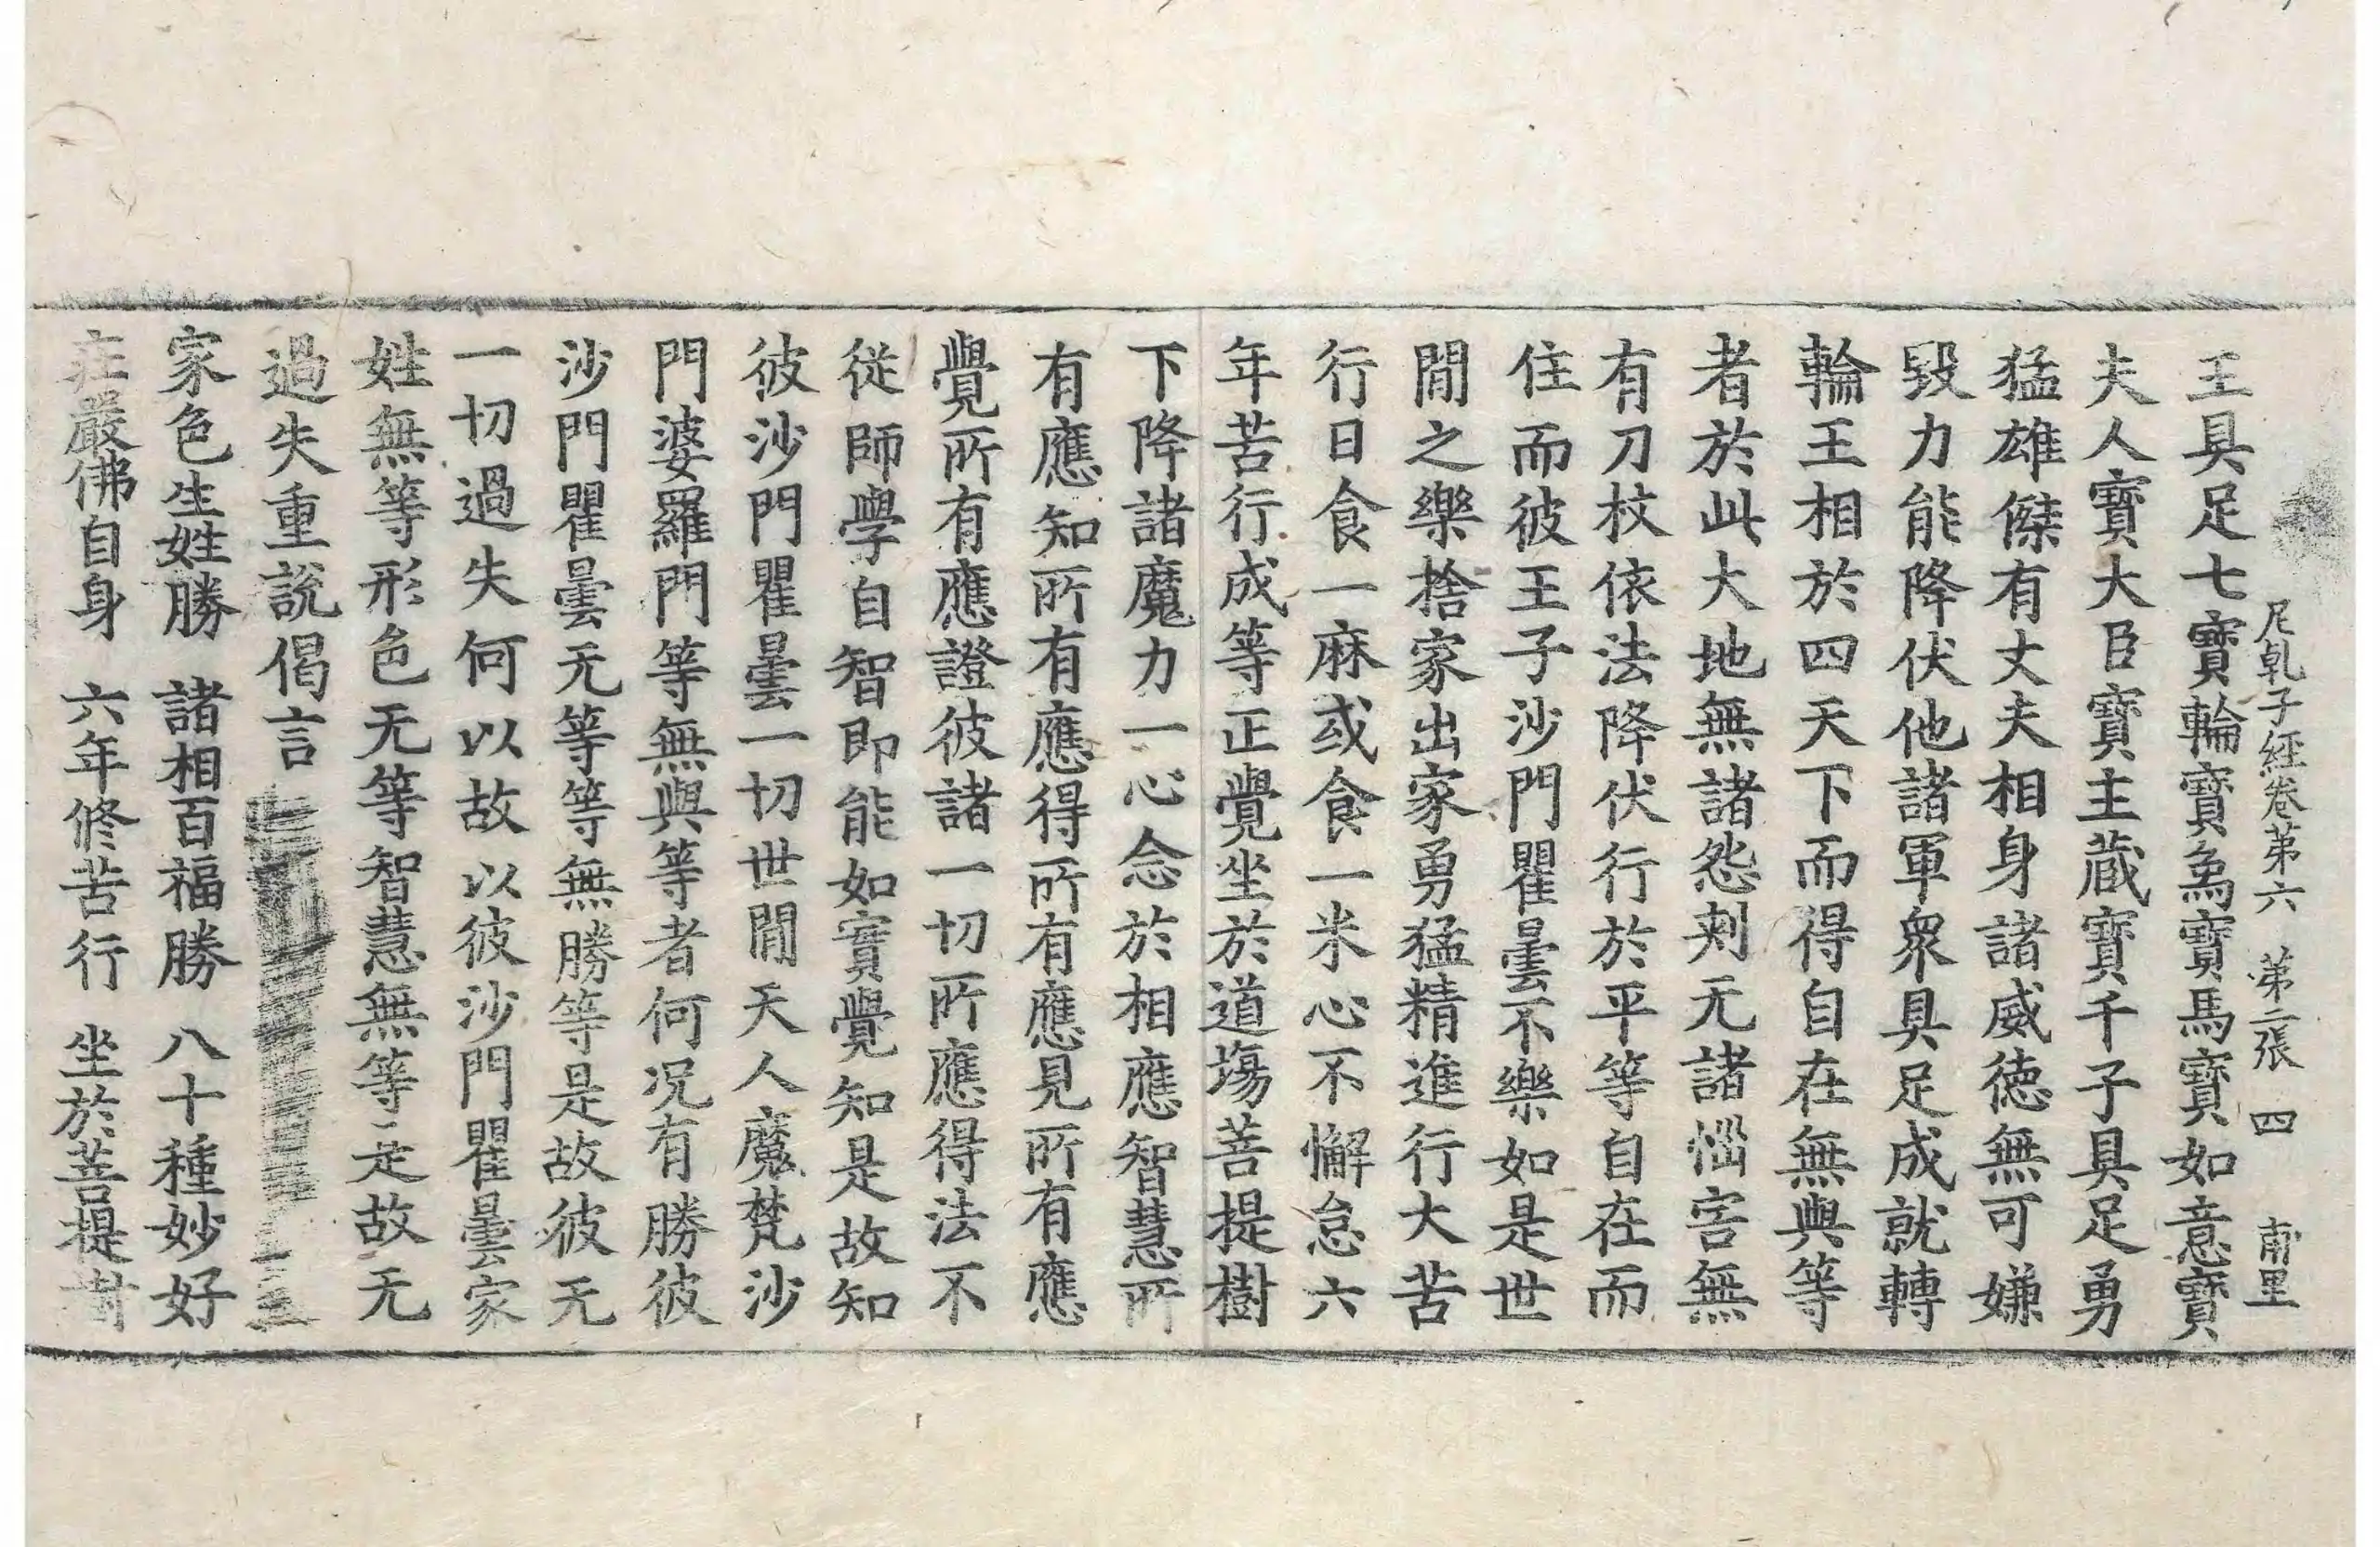 尼乹子経卷苐六　苐二張　四　南里
王具足七寶輪寶象寶馬寶如意寶
夫人寶大臣寶主蔵寶千子具足勇
猛雄傑有丈夫相身諸威徳無可嫌
毀力能降伏他諸軍衆具足成就轉
輪王相於四天下而得自在無與等
者於此大地無諸怨刺无諸惱害無
有刀杖依法降伏行於平等自在而
住而彼王子沙門瞿曇不樂如是世
間之樂捨家出家勇猛精進行大苦
行日食一麻或食一米心不懈怠六
年苦行成等正覺坐於道塲菩提樹
下降諸魔力一心念於相應智慧所
有應知所有應得所有應見所有應
覺所有應證彼諸一切所應得法不
従師學自智即能如實覺知是故知
彼沙門瞿曇一切世間天人魔梵沙
門婆羅門等無與等者何况有勝彼
沙門瞿曇无等等無勝等是故彼无
一切過失何以故以彼沙門瞿曇家
姓無等形色无等智慧無等是故无
過失重說偈言
家色生姓勝　諸相百福勝　八十種妙好
莊嚴佛自身　六年修苦行　坐於菩提樹